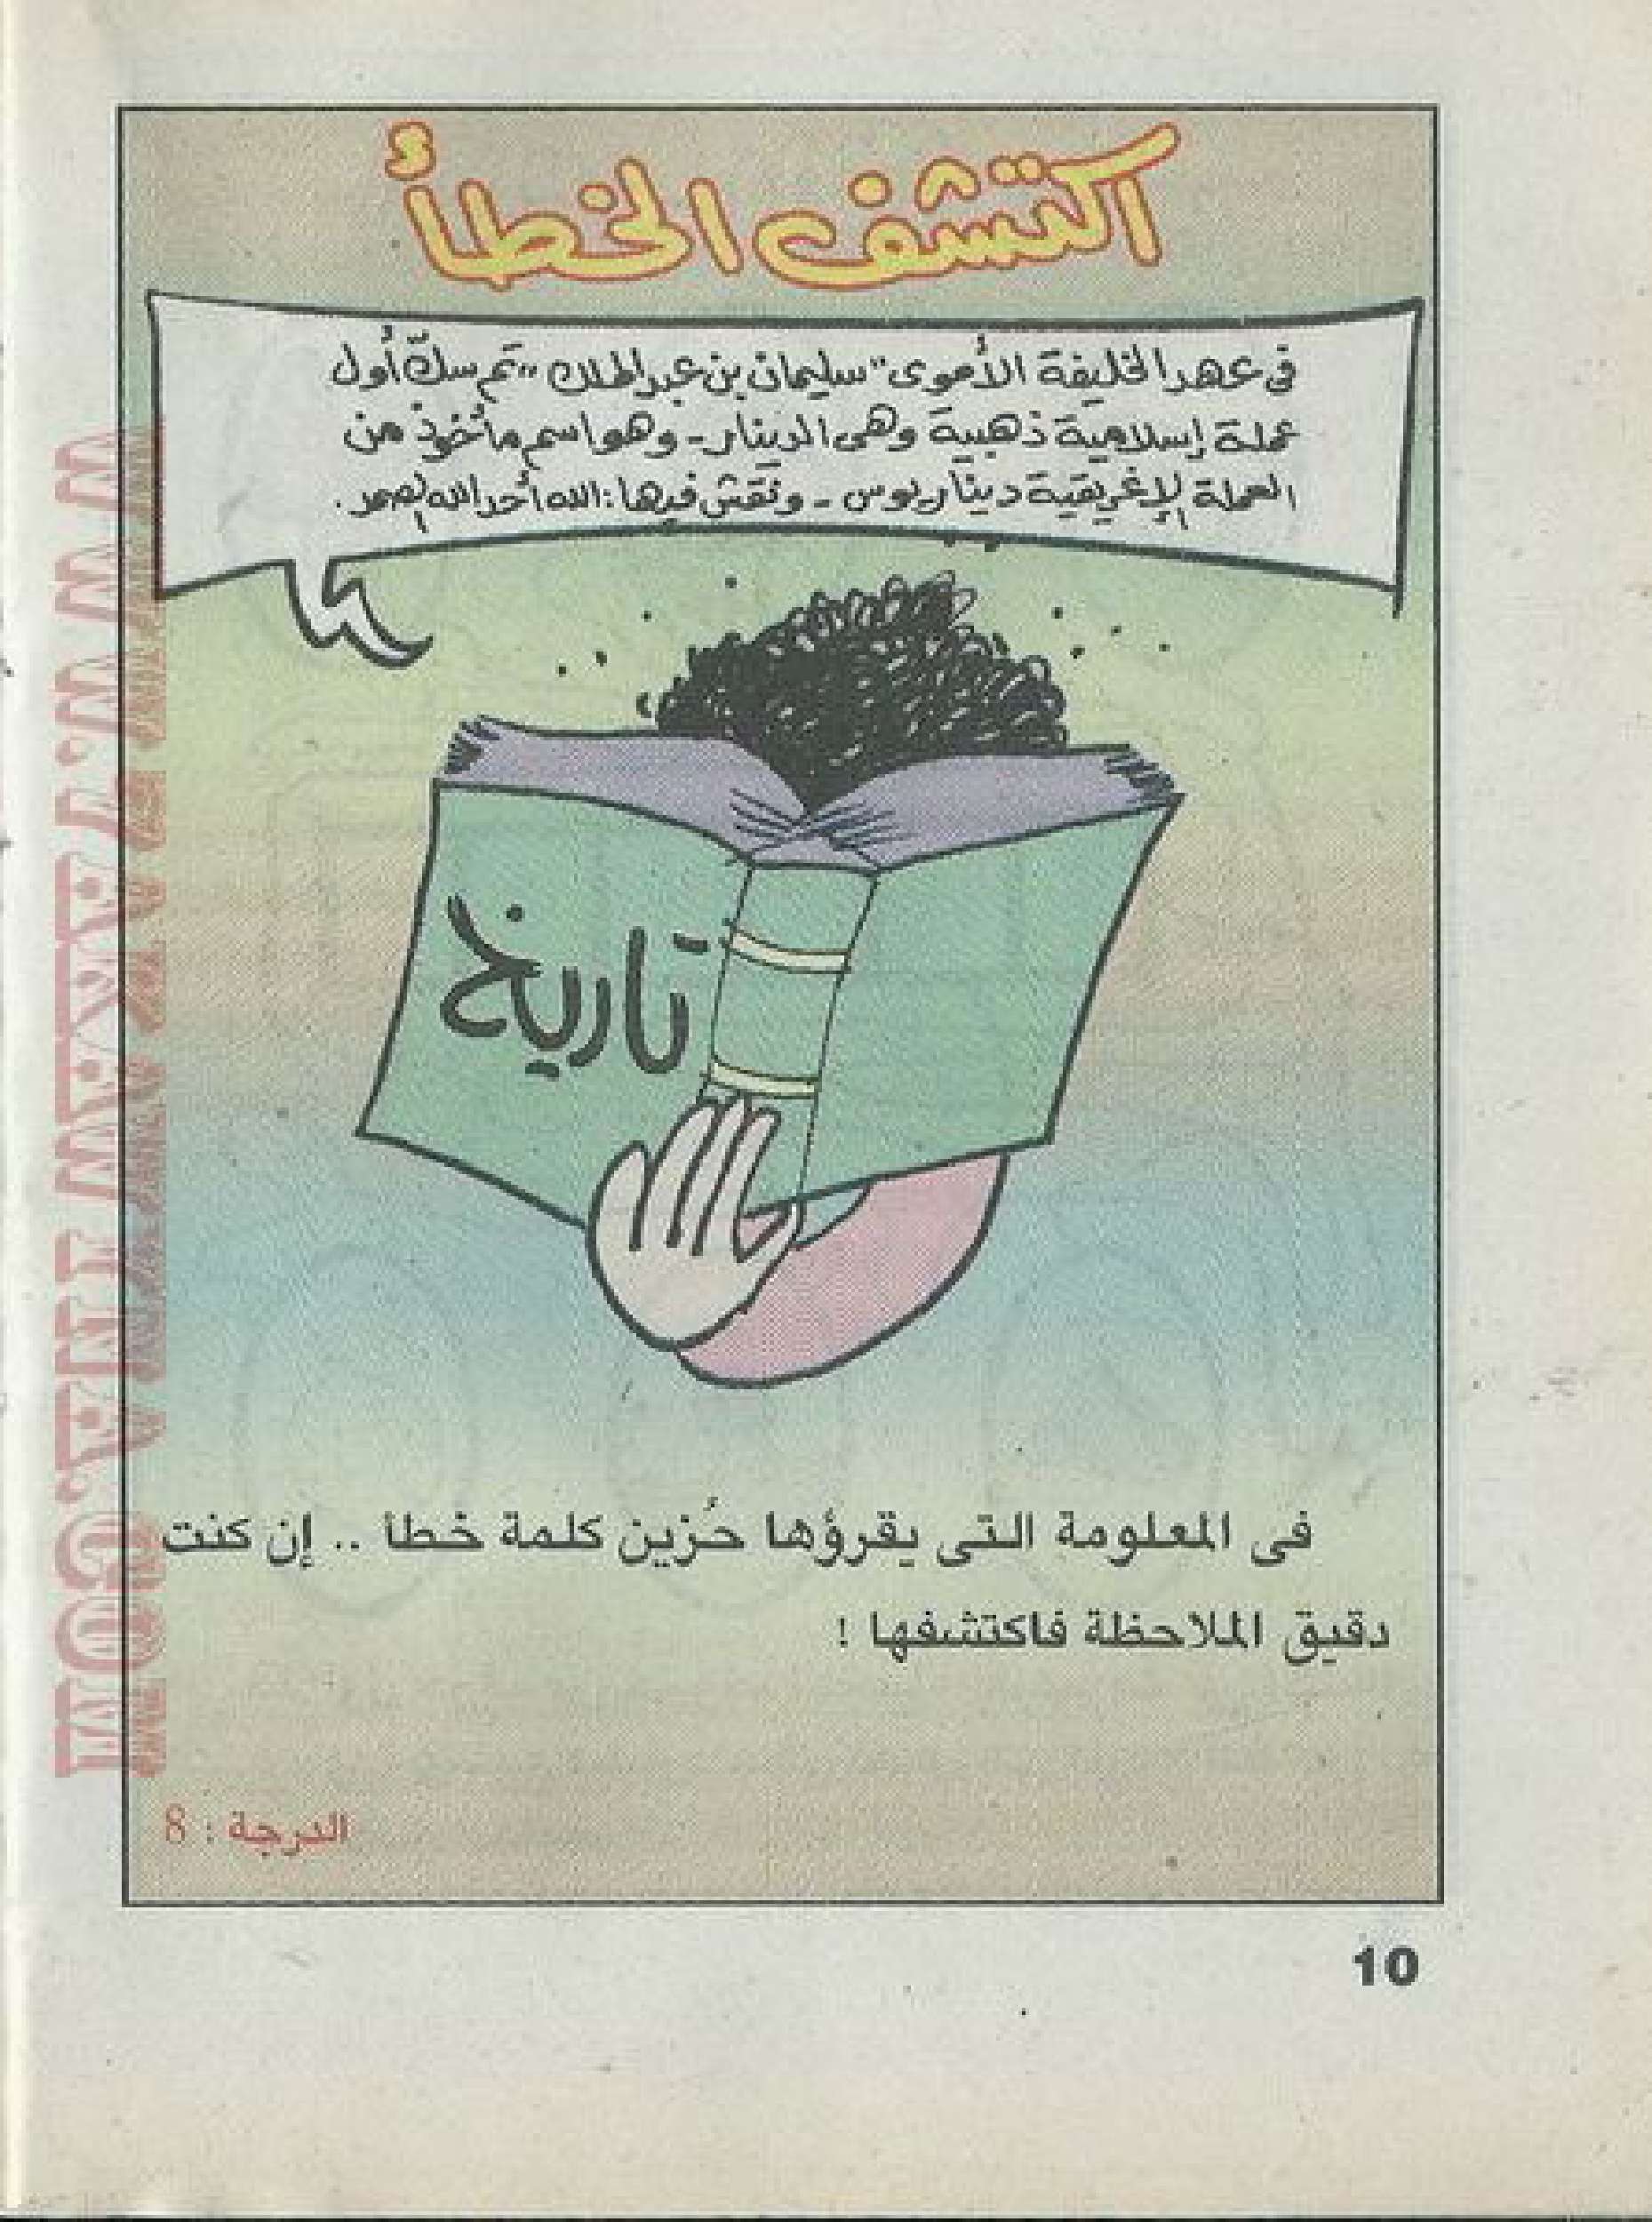 اكتشف الخطأ
فى عهد الخليفة الأموى "سليمان بن عبد الملك" تم سكّ أول
عملة إسلامية ذهبية وهى الدينار - وهو اسم مأخوذ من
العملة الإغريقية ديناريوس - ونُقش فيها: الله أحد الله الصمد.
تاريخ
فى المعلومة التى يقرؤها حُزين كلمة خطأ .. إن كنت
دقيق الملاحظة فاكتشفها !
الدرجة : 8
10